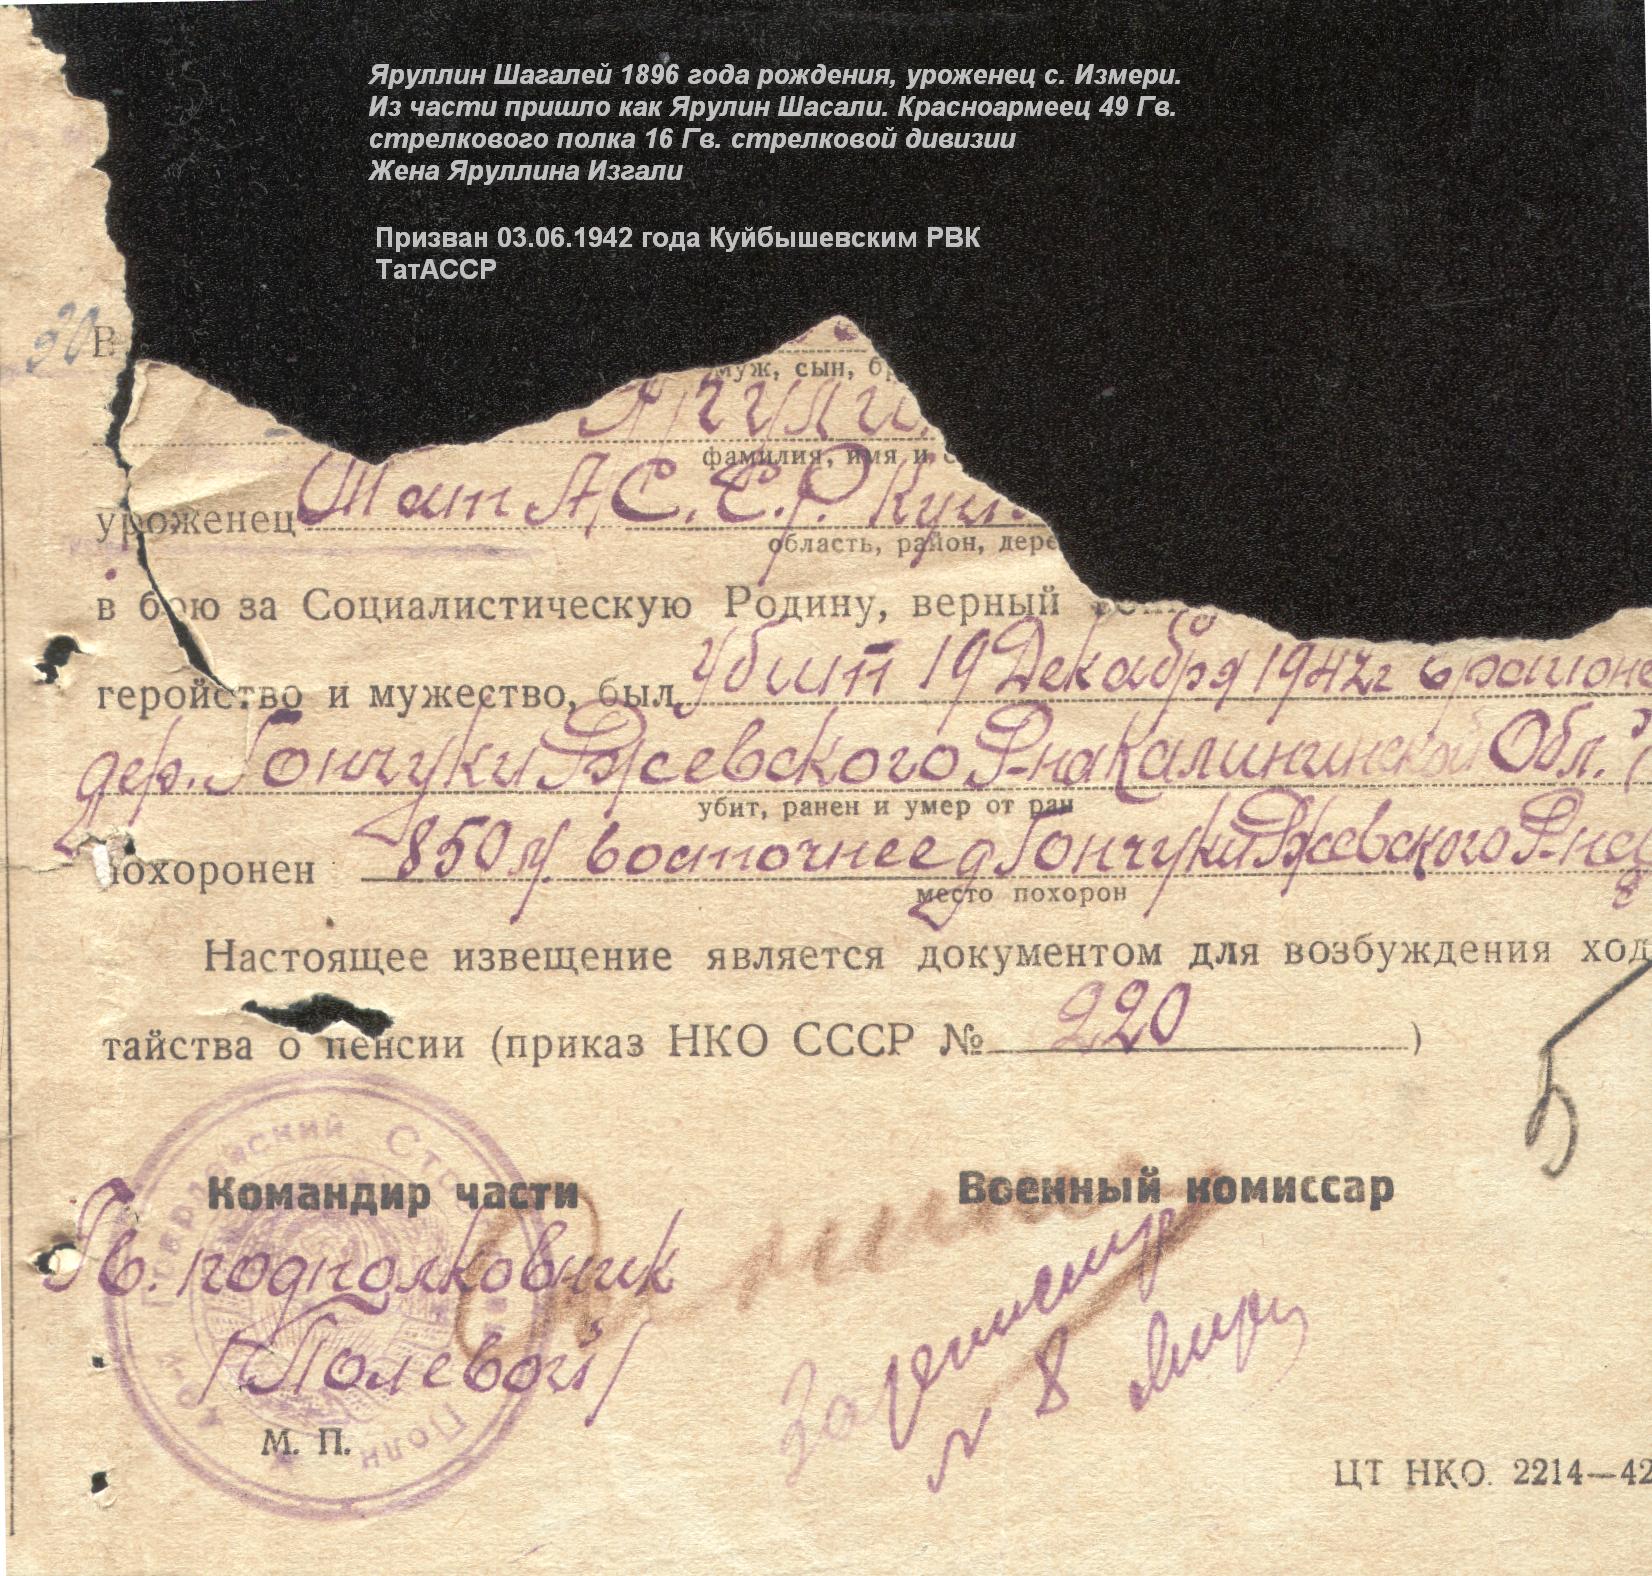 Яруллин Шагалей 1896 года рождения, уроженец с. Измери.
Из части пришло как Ярулин Шасали. Красноармеец 49 Гв.
стрелкового полка 16 Гв. стрелковой дивизии
Жена Яруллина Изгали
Призван 03.06.1942 года Куйбышевским РВК
ТатАССР
В
муж, сын, бр
фамилия, имя и
уроженец Тат А.С.С.Р.
область, район, дере
в бою за Социалистическую Родину, верный
геройство и мужество, был убит 19 Декабря 1942г в районе
дер. Гончуки Ржевского Р-на Калининской Обл.
убит, ранен и умер от ран
похоронен 850 м. восточнее д Гончуки Ржевского Р-на
место похорон
Настоящее извещение является документом для возбуждения ход
тайства о пенсии (приказ НКО СССР № 220 )
Командир части Военный комиссар
Гв. подполковник
/Полевой/
М. П.
№ 8
ЦТ НКО. 2214—42